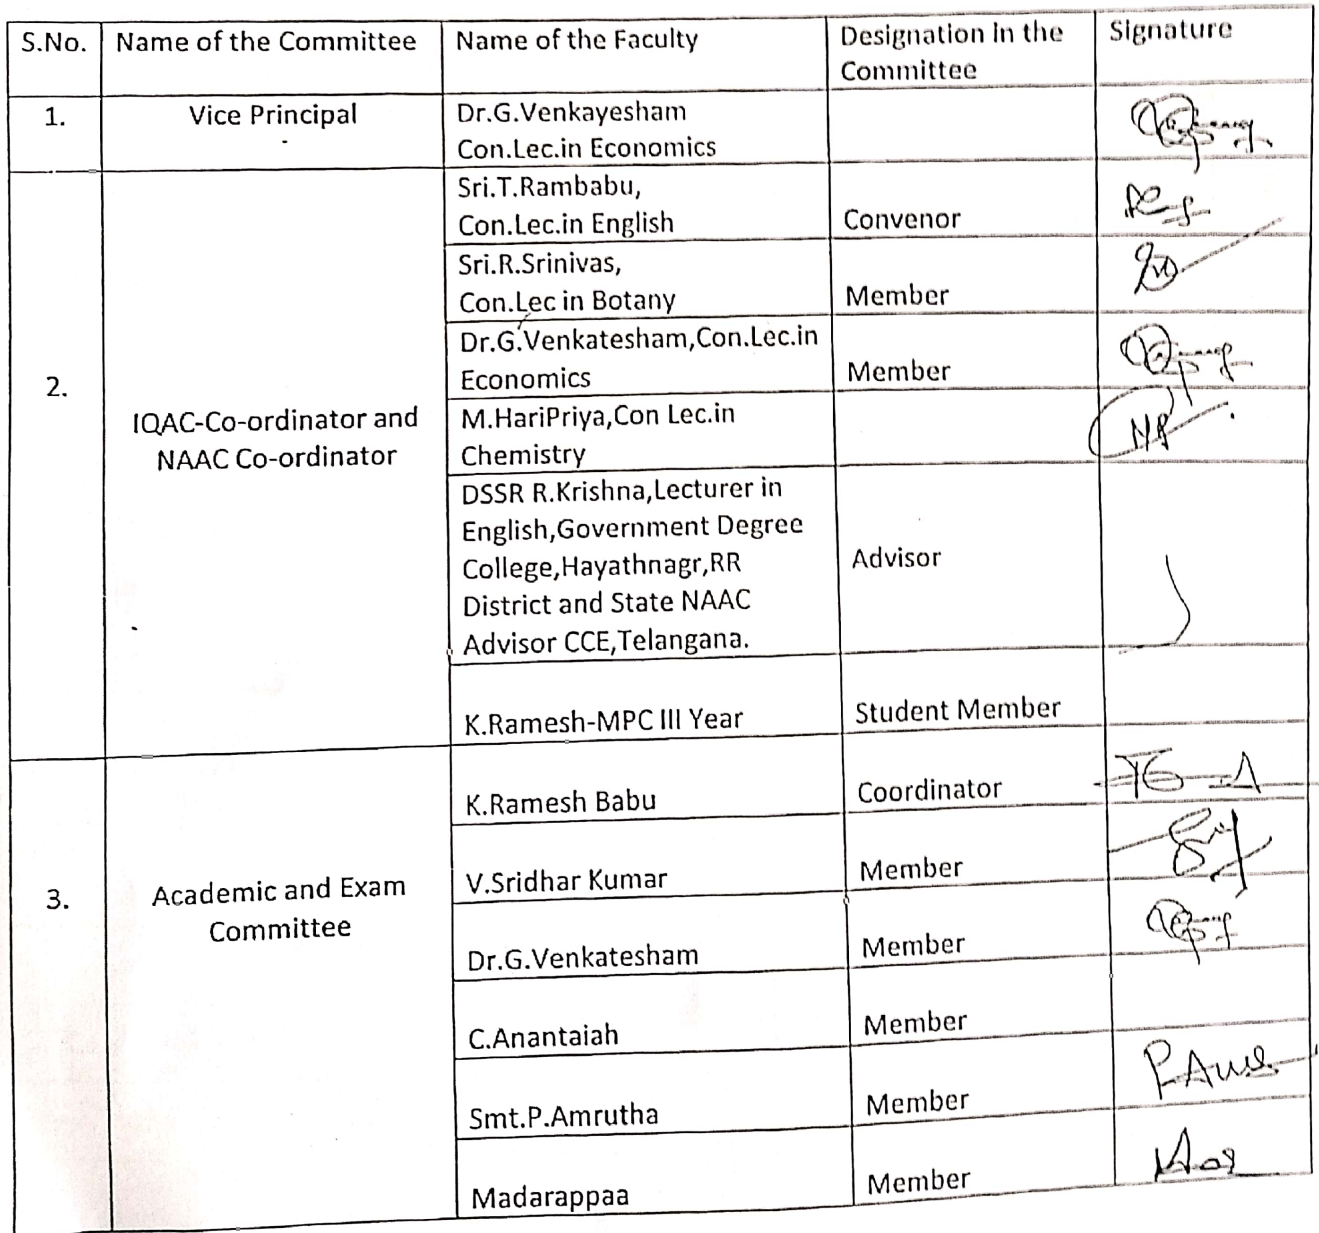 S.No. Name of the Committee Name of the Faculty Designation in the Signature
Committee
1. Vice Principal Dr.G.Venkayesham
Con.Lec.in Economics
2. IQAC-Co-ordinator and
NAAC Co-ordinator
Sri.T.Rambabu,
Con.Lec.in English Convenor
Sri.R.Srinivas,
Con.Lec in Botany Member
Dr.G.Venkatesham,Con.Lec.in
Economics Member
M.HariPriya,Con Lec.in
Chemistry
DSSR R.Krishna,Lecturer in
English,Government Degree
College,Hayathnagr,RR Advisor
District and State NAAC
Advisor CCE,Telangana.
K.Ramesh-MPC III Year Student Member
3. Academic and Exam
Committee
K.Ramesh Babu Coordinator
V.Sridhar Kumar Member
Dr.G.Venkatesham Member
C.Anantaiah Member
Smt.P.Amrutha Member
Madarappaa Member